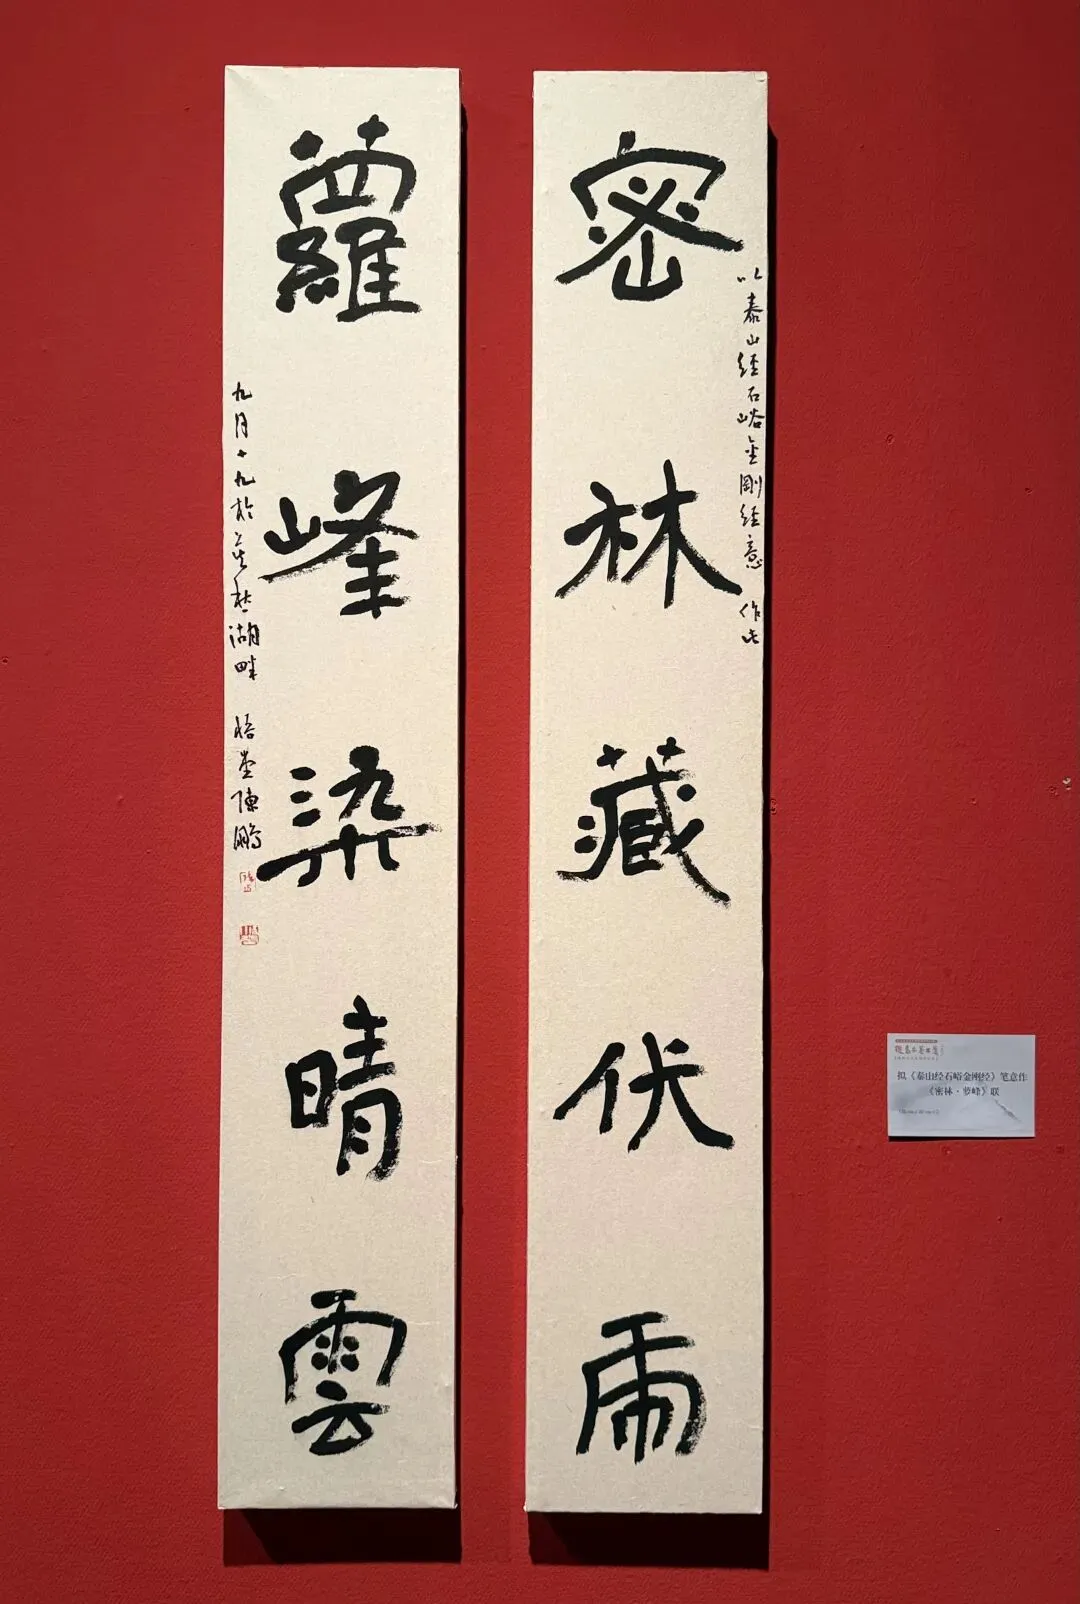 密林藏伏虎
以泰山經石峪金剛經意 作此
蘿峰染晴雲
九月十九於湖畔 悟堂陳鵬
拟《泰山经石峪金刚经》笔意作
《密林·萝峰》联